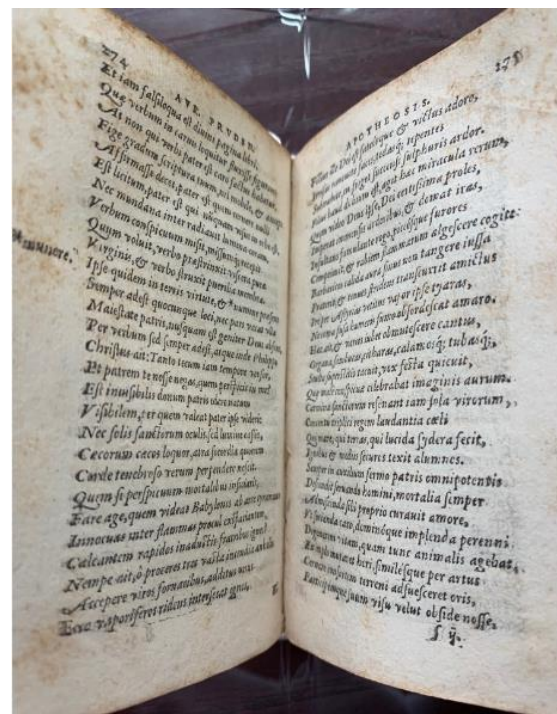 274 AVR. PRVDEN.
Et iam falsiloqua est diuini pagina libri,
Que verbum in carnis loquitur fluxisse figuram
At non qui verbi pater est caro factus habetur.
Fige gradum scriptura tuum, mobile, &
Affirmasse decet, pater est quem cernere nulli
Est licitum, pater est qui nusquam visus in orbe est,
Nec mundana inter radiauit lumina coram.
Verbum conspicuum misit, missumq; recepit
Quum voluit, verbo præstrinxit viscera puræ
Virginis, & verbo struxit puerilia membra.
Ipse quidem in terris virtute, & *numine præsens
*munere.
Semper adest quocunque loci, nec pars vacat vlla
Maiestate patris, nusquam est genitor Deus absens,
Per verbum sed semper adest, atque inde Philippo
Christus ait: Tanto tecum iam tempore versor,
Et patrem te nosse negas, quem perspicis in me?
Est inuisibilis donum patris edere natum
Visibilem, per quem valeat pater ipse videri:
Nec solis sanctorum oculis, sed lumine cassis,
Cæcorum cæcos loquor, atra socordia quorum
Corde tenebroso verum perpendere nescit.
Quem si perspicuum mortalibus inficiaris,
Fare age, quem videat Babylonis ab arce tyrannus
Innocuas inter flammas procul exspatiantem,
Calcantem rapidos inadustis fratribus ignes?
Nempe ait, ô proceres tres vasta incendia anhelis
Accepere viros fornacibus, additus vnus
Ecce vaporiferos ridens intersecat ignes,
E
APOTHEOSIS. 275
Filius ille Dei est fateorque & victus adoro,
repentes
sulphuris ardor.
Filius haud dubium est, agit hæc miracula rerum,
Quem video Deus ipse, Dei certissima proles,
Imperat immensis ardoribus, & demat iras,
Insultans fumulante rogo, piceosque furores
Comprimit: & rabiem flammarum algescere cogit:
Barbaricos calida aura sinus non tangere iussa
Præterit, & tenues stridens transcurrit amictus
Propter Assyrias vetitus vapor ire tyaras,
Ne coma fusa humeris fumo obsordescat amaro.
Hæc ait, & varias iubet obmutescere cantus,
Organa, sambucas, citharas, calamosq; tubasq;,
Stulta superstitio tacuit, vox festa quieuit,
Quæ male conspicuæ celebrabat imaginis aurum.
Carmina sanctorum resonant iam sola virorum,
Cunctaque triplici regem laudantia cœli
Qui mare, qui terras, qui lucida sydera fecit,
Ignibus & medijs securos texit alumnos.
Semper in auxilium sermo patris omnipotentis
Descendit seruando homini, mortalia semper
Admiscenda sibi proprio curauit amore,
Vt socianda caro, dominoque implenda perenni
Degenerem vitam, quam tunc animalis agebat,
Exemplo mutaret heri, similesque per artus
Cernere coniectum terreni adsuesceret oris,
Participemque suum visu velut obside nosse,
ſ ij.